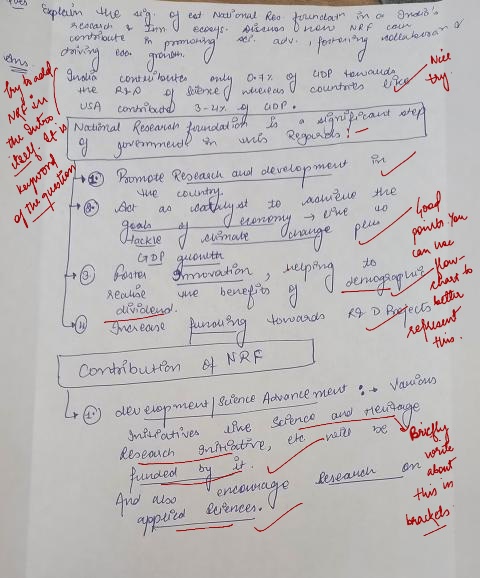 Explain the sig. of est National Res. foundation in a India's
research & Inn. ecosys. Discuss how NRF can
contribute in promoting sci. adv., fostering collaboration &
driving eco. growth.
Ans.
India contributes only 0.7% of GDP towards
the R&D of Science whereas countries like
USA contribute 3-4% of GDP.
Nice
try.
Try to add
NRF in
the Intro
itself. It is
keyword
of the question
National Research foundation is a significant step
of government in this Regards :-
1. Promote Research and development in
the country.
2. Act as catalyst to achieve the
goals of economy → like to
tackle climate change plus
GDP growth
3. Foster Innovation, helping to
realise the benefits of demographic
dividend.
4. Increase funding towards R & D Projects
Good
points You
can use
flow-
chart to
better
represent
this.
Contribution of NRF
1. development/Science Advancement :→ Various
Initiatives like Science and Heritage
Research Initiative, etc will be
funded by it.
And also encourage Research on
applied Sciences.
Briefly
write
about
this in
brackets.